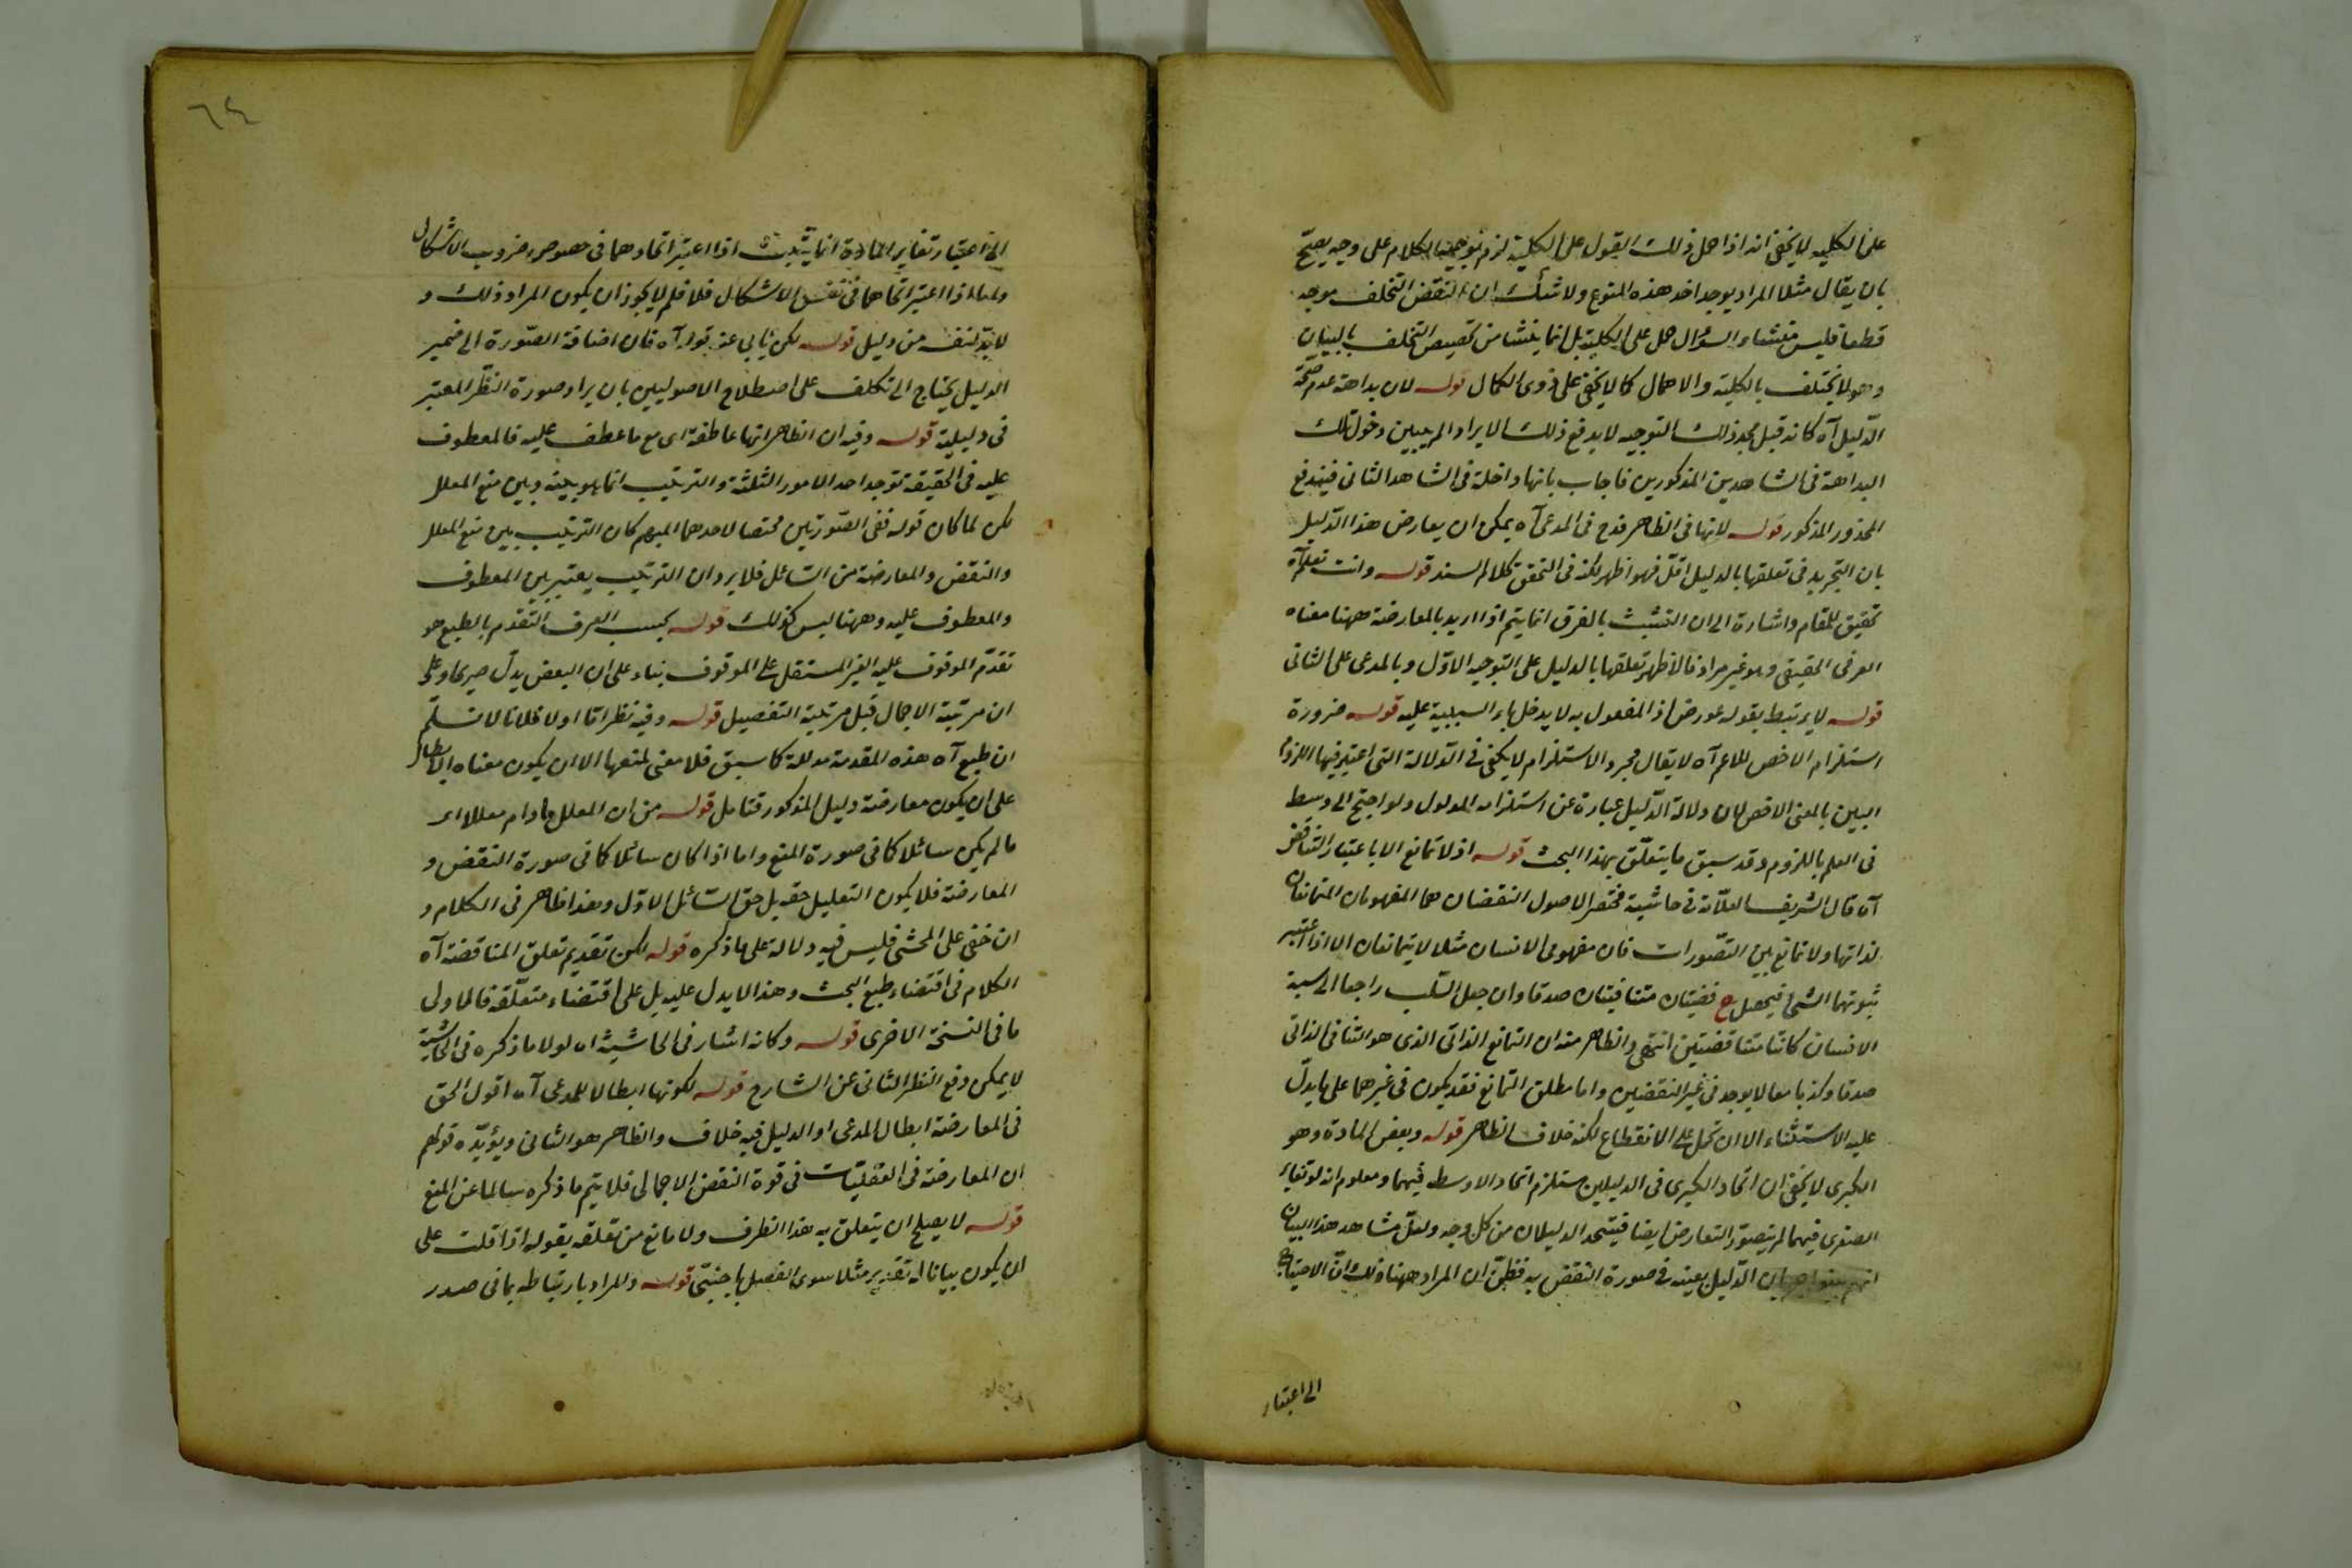 على الكلية لا يخفى انه اذا حمل ذلك القول على الكلية لزم توجيه الكلام على وجه يصح
بان يقال مثلا المراد يوجد احد هذه المنوع ولا شك ان النقض التخلف موجه
قطعا فليس منشاء السؤال حمل على الكلية بل انما ينشأ من تخصيص التخلف بالبيان
وهو لا يختلف بالكلية والاهمال كما لا يخفى على ذوى الكمال قوله لان بداهة عدم صحة
الدليل آه كانه قيل مجرد ذلك التوجيه لا يدفع ذلك الايراد لم يبين دخول تلك
البداهة فى الشاهدين المذكورين فاجاب بانها داخلة فى الشاهد الثانى فيندفع
المحذور المذكور قوله لانها فى الظاهر قدح فى المدعى آه يمكن ان يعارض هذا الدليل
بان التجريد فى تعلقها بالدليل اقل فهو اظهر لكنه فى التحقق كلام السند قوله وانت تعلم آه
تحقيق للمقام واشارة الى ان التشبث بالفرق انما يتم اذا اريد بالمعارضة ههنا معناه
العرفى الحقيقى وهو غير مراد فالاظهر تعلقها بالدليل على التوجيه الاول وبالمدعى على الثانى
قوله لا يرتبط بقوله عورض اذ المفعول به لا يدخل باء السببية عليه قوله ضرورة
استلزام الاخص للاعم آه لا يقال مجرد الاستلزام لا يكفى فى الدلالة التى اعتبر فيها اللزوم
البين بالمعنى الاخص لان دلالة الدليل عبارة عن استلزامه المدلول ولو احتج الى وسط
فى العلم باللزوم وقد سبق ما يتعلق بهذا البحث قوله اذ لا تمانع الا باعتبار التناقض
آه قال الشريف العلامة فى حاشية مختصر الاصول النقضان هما المفهومان المتمانعان
لذاتها ولا تمانع بين التصورات فان مفهومى الانسان مثلا لا يتمانعان الا اذا اعتبر
ثبوتهما لشئ فيحصل ح قضيتان متنافيتان صدقا وان جعل السلب راجعا الى نسبة
الانسان كانتا متناقضتين انتهى والظاهر منه ان التمانع الذاتى الذى هو التنافى الذاتى
صدقا وكذبا معا لا يوجد فى غير النقضين واما مطلق التمانع فقد يكون فى غيرهما على ما يدل
عليه الاستثناء الا ان يحمل على الانقطاع لكنه خلاف الظاهر قوله وبعض المادة وهو
الكبرى لا يخفى ان اتحاد الكبرى فى الدليلين يستلزم اتحاد الاوسط فيهما ومعلوم انه لو تغاير
الصغرى فيهما لم يتصور التعارض ايضا فيتحد الدليلان من كل وجه ولعل مشاهد هذا البيان
الدليل بعينه فى صورة النقض به فظن ان المراد ههنا ذلك ان الاحتياج
الى اعتبار
٦٤
الى اعتبار تغاير المادة انما يثبت اذا اعتبر اتحادهما فى خصوص ضروب الاشكال
واما اذا اعتبر اتحادهما فى نفس الاشكال فلا فلم لا يجوز ان يكون المراد ذلك و
لا بد لنفيه من دليل قوله لكن يأبى عنه قوله آه فان اضافة الصورة الى ضمير
الدليل يحتاج الى تكلف على اصطلاح الاصوليين بان يراد صورة النظر المعتبر
فى دليلية قوله وفيه ان الظاهر انها عاطفة اى مع ما عطف عليه فالمعطوف
عليه فى الحقيقة توجد احد الامور الثلثة والترتيب انما هو بينه وبين منع المعلل
لكن لما كان قوله ففى الصورتين مختصا لاحدهما المبهم كان الترتيب بين منع المعلل
والنقض والمعارضة من السائل فلا يرد ان الترتيب يعتبر بين المعطوف
والمعطوف عليه وههنا ليس كذلك قوله بحسب العرف التقدم بالطبع هو
تقدم الموقوف عليه الغير المستقل على الموقوف بناء على ان البعض يدل صريحا على
ان مرتبة الاجمال قبل مرتبة التفصيل قوله وفيه نظر اما اولا فلانا لا نسلم
ان طبع آه هذه المقدمة مدللة كما سبق فلا معنى لمنعها الا ان يكون معناه ابطال
على ان يكون معارضة دليل المذكور فتأمل قوله من ان المعلل ما دام معللا اى
ما لم يكن سائلا كما فى صورة المنع واما اذا كان سائلا كما فى صورة النقض و
المعارضة فلا يكون التعليل حقه بل حق السائل الاول وهذا ظاهر فى الكلام و
ان خفى على المحشى فليس فيه دلالة على ما ذكره قوله لكن تقديم تعلق المناقضة آه
الكلام فى اقتضاء طبع البحث وهذا لا يدل عليه بل على اقتضاء متعلقه فالاولى
ما فى النسخة الاخرى قوله وكانه اشار فى الحاشية اه لولا ما ذكره فى الحاشية
لا يمكن دفع النظر الثانى عن الشارح قوله لكونها ابطالا للمدعى آه اقول الحق
فى المعارضة ابطال المدعى او الدليل فيه خلاف والظاهر هو الثانى ويؤيده قولهم
ان المعارضة فى العقليات فى قوة النقض الاجمالى فلا يتم ما ذكره سالما عن المنع
قوله لا يصلح ان يتعلق به هذا الظرف ولا مانع من تعلقه بقوله اذا قلت على
ان يكون بيانا له تقدير مثلا سوى الفصل باجنبى قوله والمراد بارتباطه بما فى صدر